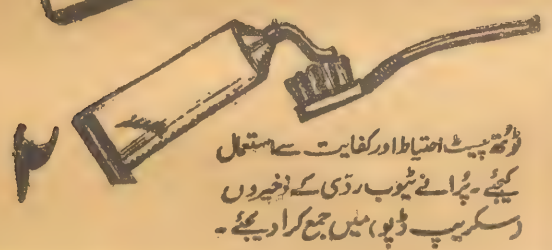 ۲
ٹوتھ پیسٹ احتیاط اور کفایت سے استعمال
کیجئے ۔ پُرانے ٹیوب ردّی کے ذخیروں
(سکریپ ڈپو) میں جمع کرا دیجئے ۔